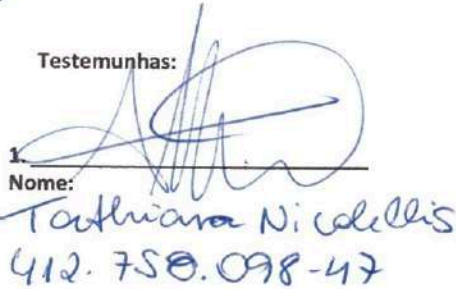 Testemunhas:
1.
Nome:
Tathiana Nicolellis
412.750.098-47